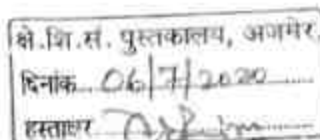 क्षे.शि.सं. पुस्तकालय, अजमेर
दिनांक 06/7/2020
हस्ताक्षर